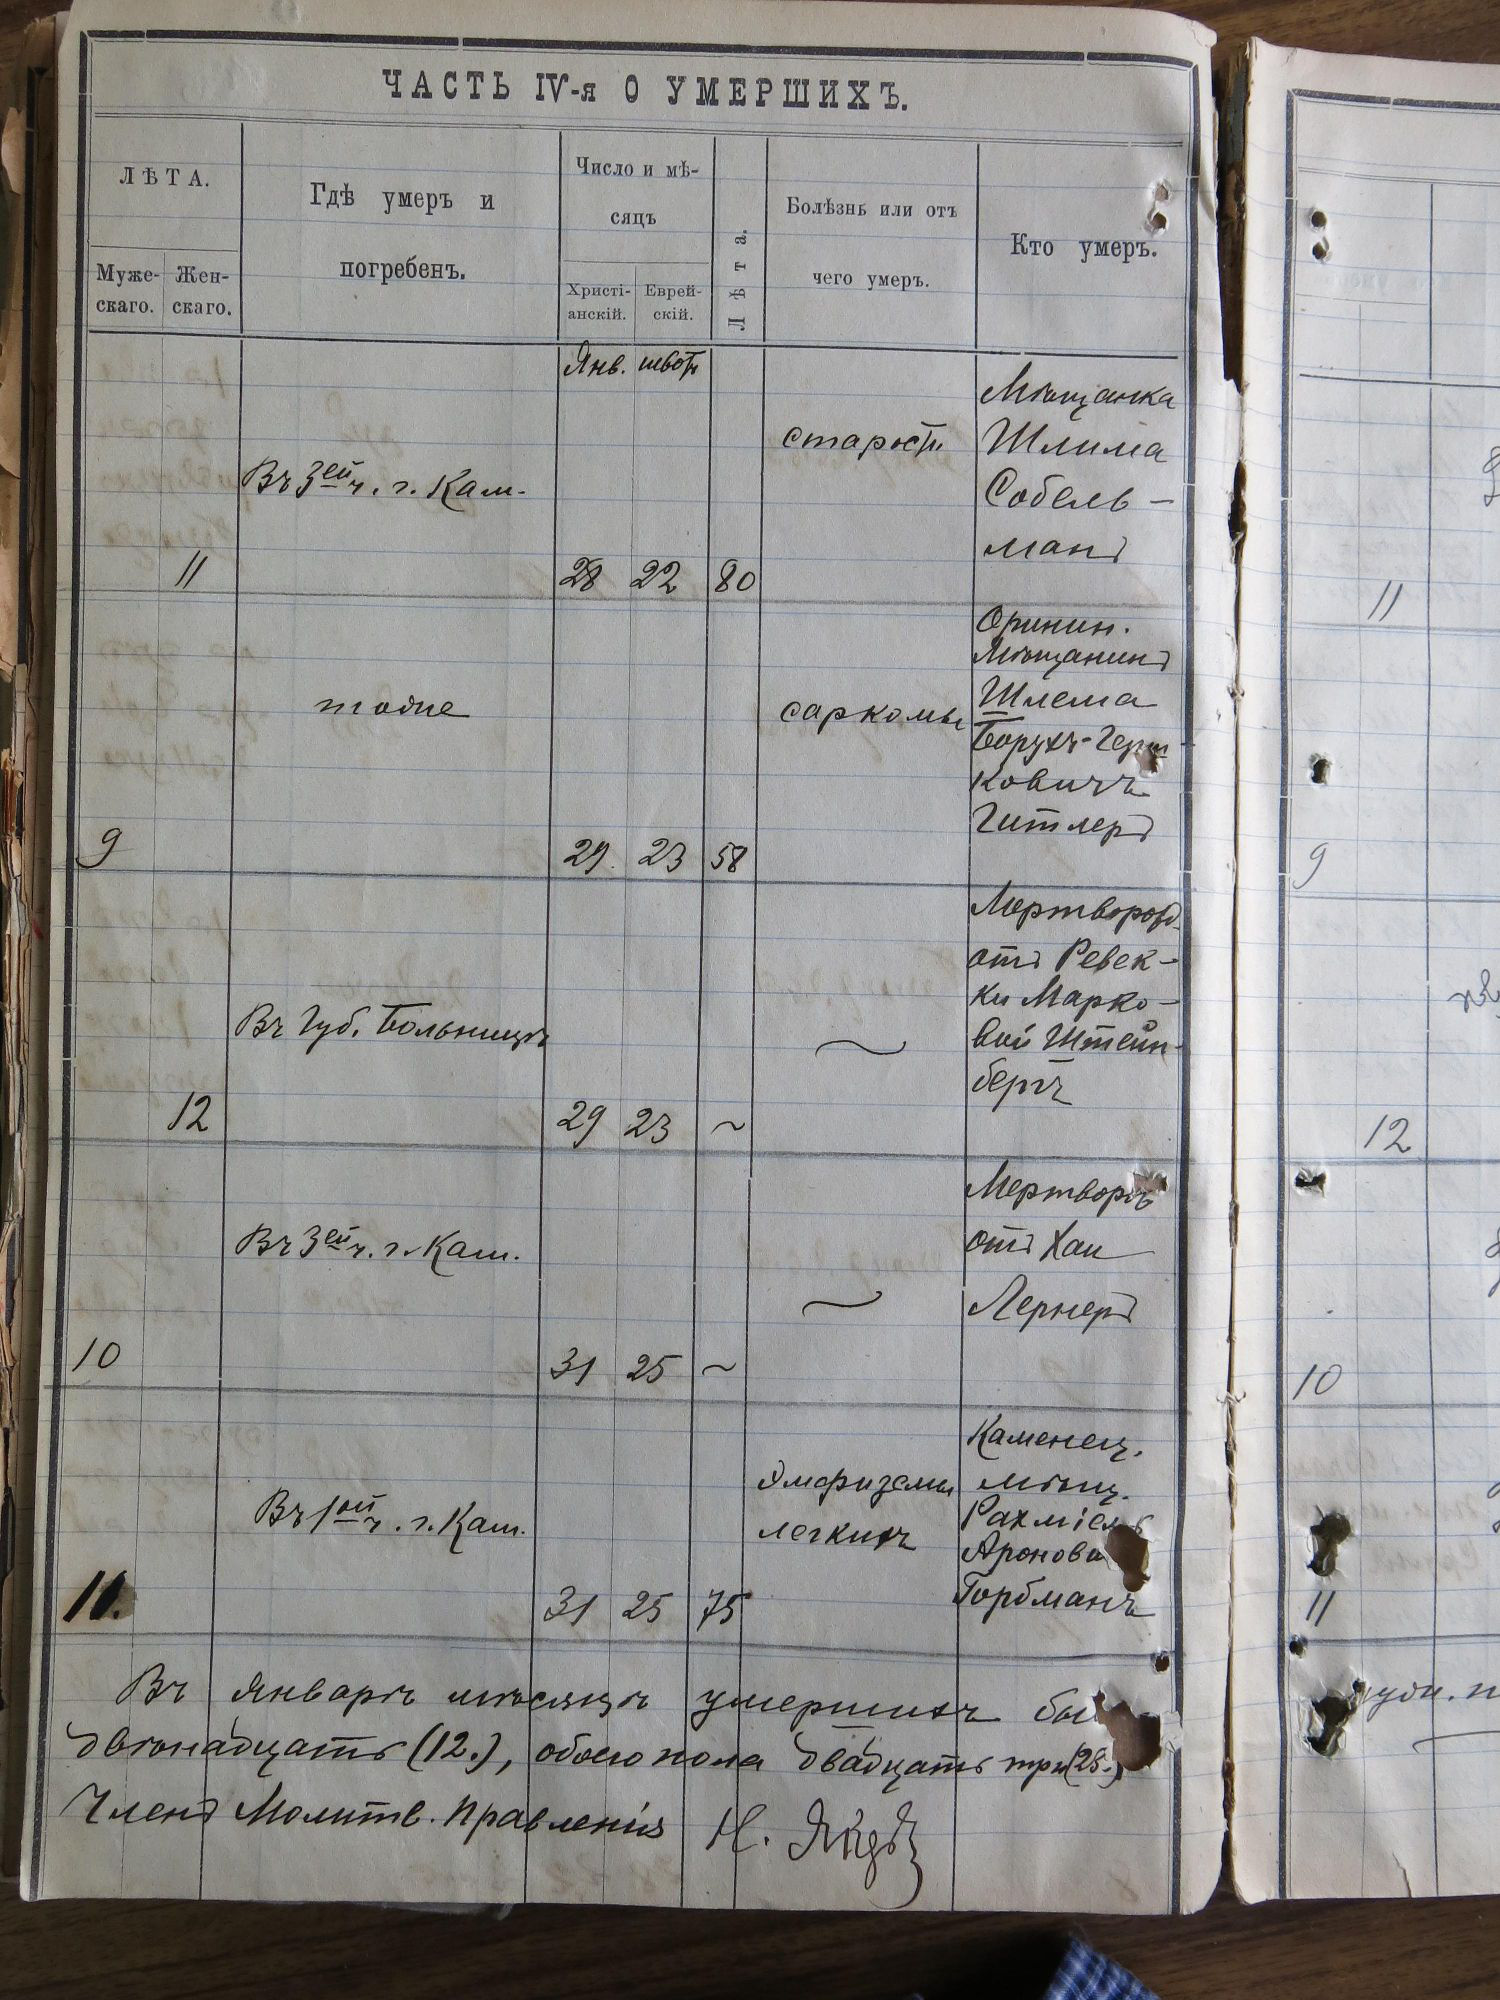 ЧАСТЬ IV-я О УМЕРШИХЪ.
ЛѢТА.
Муже-
скаго.
Жен-
скаго.
Гдѣ умеръ и
погребенъ.
Число и мѣ-
сяцъ
Христі-
анскій.
Еврей-
скій.
Лѣта.
Болѣзнь или отъ
чего умеръ.
Кто умеръ.
Янв. шватъ
11
Въ 3ей ч. г. Кам.
28 22 80
старости
Мѣщанка
Шлима
Собель-
манъ
9
тоже
29. 23 58
саркомы
Оринин.
Мѣщанинъ
Шлема
Борухъ-Герш-
ковичъ
Гитлеръ
12
Въ Губ. Больницѣ
29 23 ~
~
Мертворожд.
отъ Ревек-
ки Марко-
вой Штейн-
бергъ
10
Въ 3ей ч. г. Кам.
31 25 ~
~
Мертворъ
отъ Хаи
Лернеръ
11.
Въ 1ой ч. г. Кам.
31 25 75
Эмфиземы
легкихъ
Каменец.
мѣщ.
Рахміель
Аронови
Горбманъ
Въ Январѣ мѣсяцѣ умершихъ бы
двѣнадцать (12.), обоего пола двадцать три (23.)
Членъ Молитв. Правленія Н.
11
9
12
10
11